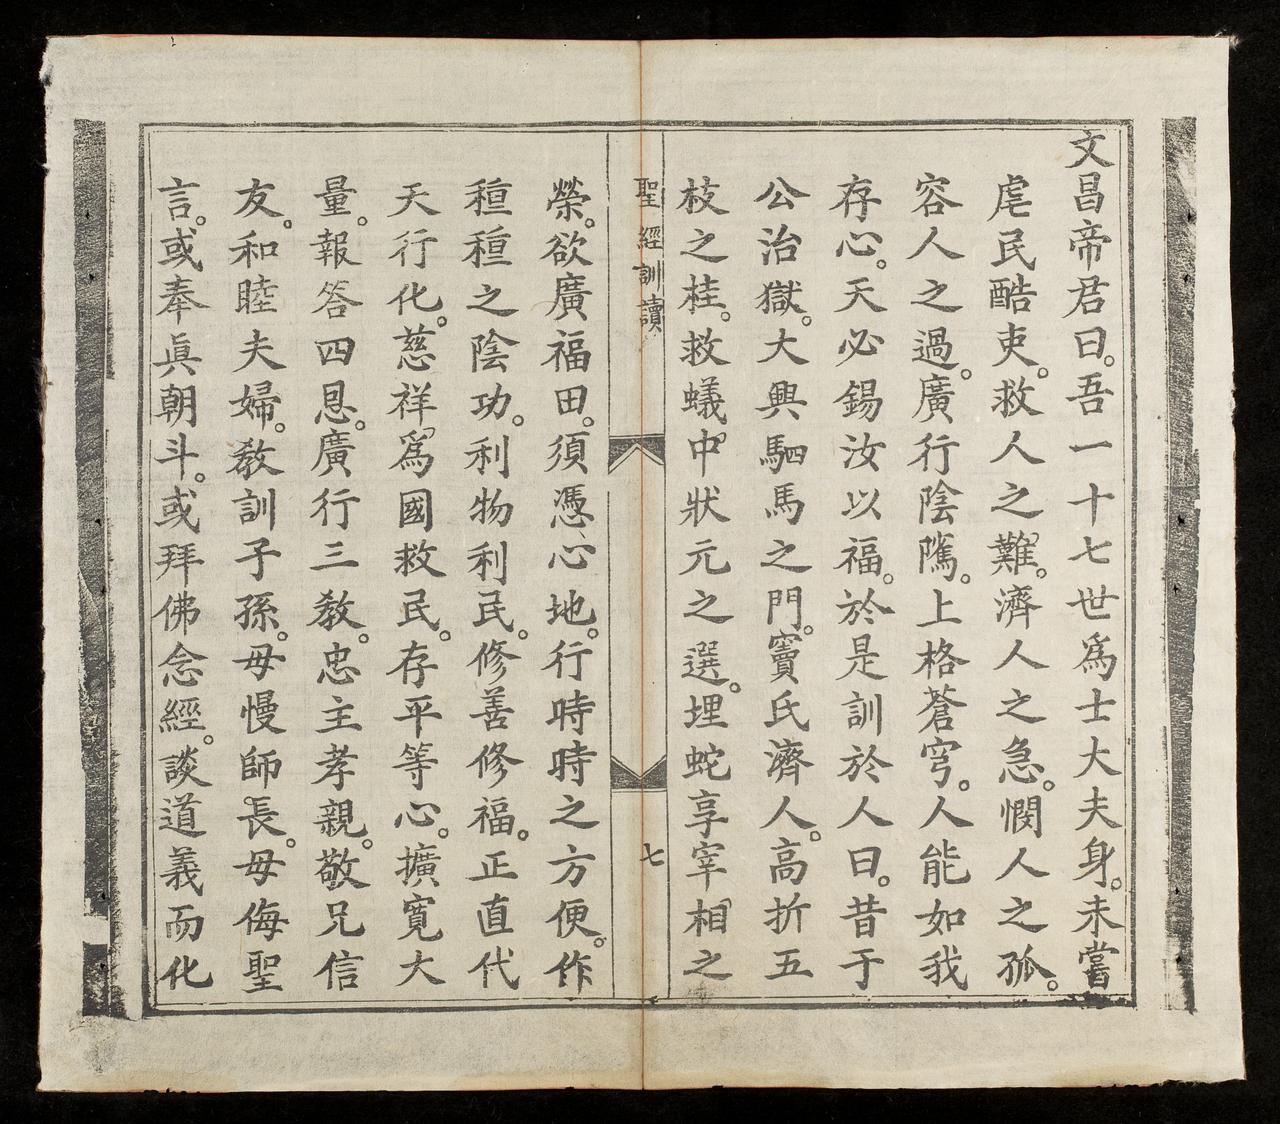 文昌帝君曰。吾一十七世爲士大夫身。未嘗
虐民酷吏。救人之難。濟人之急。憫人之孤。
容人之過。廣行陰隲。上格蒼穹。人能如我
存心。天必錫汝以福。於是訓於人曰。昔于
公治獄。大興駟馬之門。竇氏濟人。高折五
枝之桂。救蟻。中狀元之選。埋蛇享宰相之
聖經訓讀
七
榮。欲廣福田。須憑心地。行時時之方便。作
種種之陰功。利物利民。修善修福。正直代
天行化。慈祥。爲國救民。存平等心。擴寬大
量。報答四恩。廣行三教。忠主孝親。敬兄信
友。和睦夫婦。教訓子孫。毋慢師長。毋侮聖
言。或奉眞朝斗。或拜佛念經。談道義而化